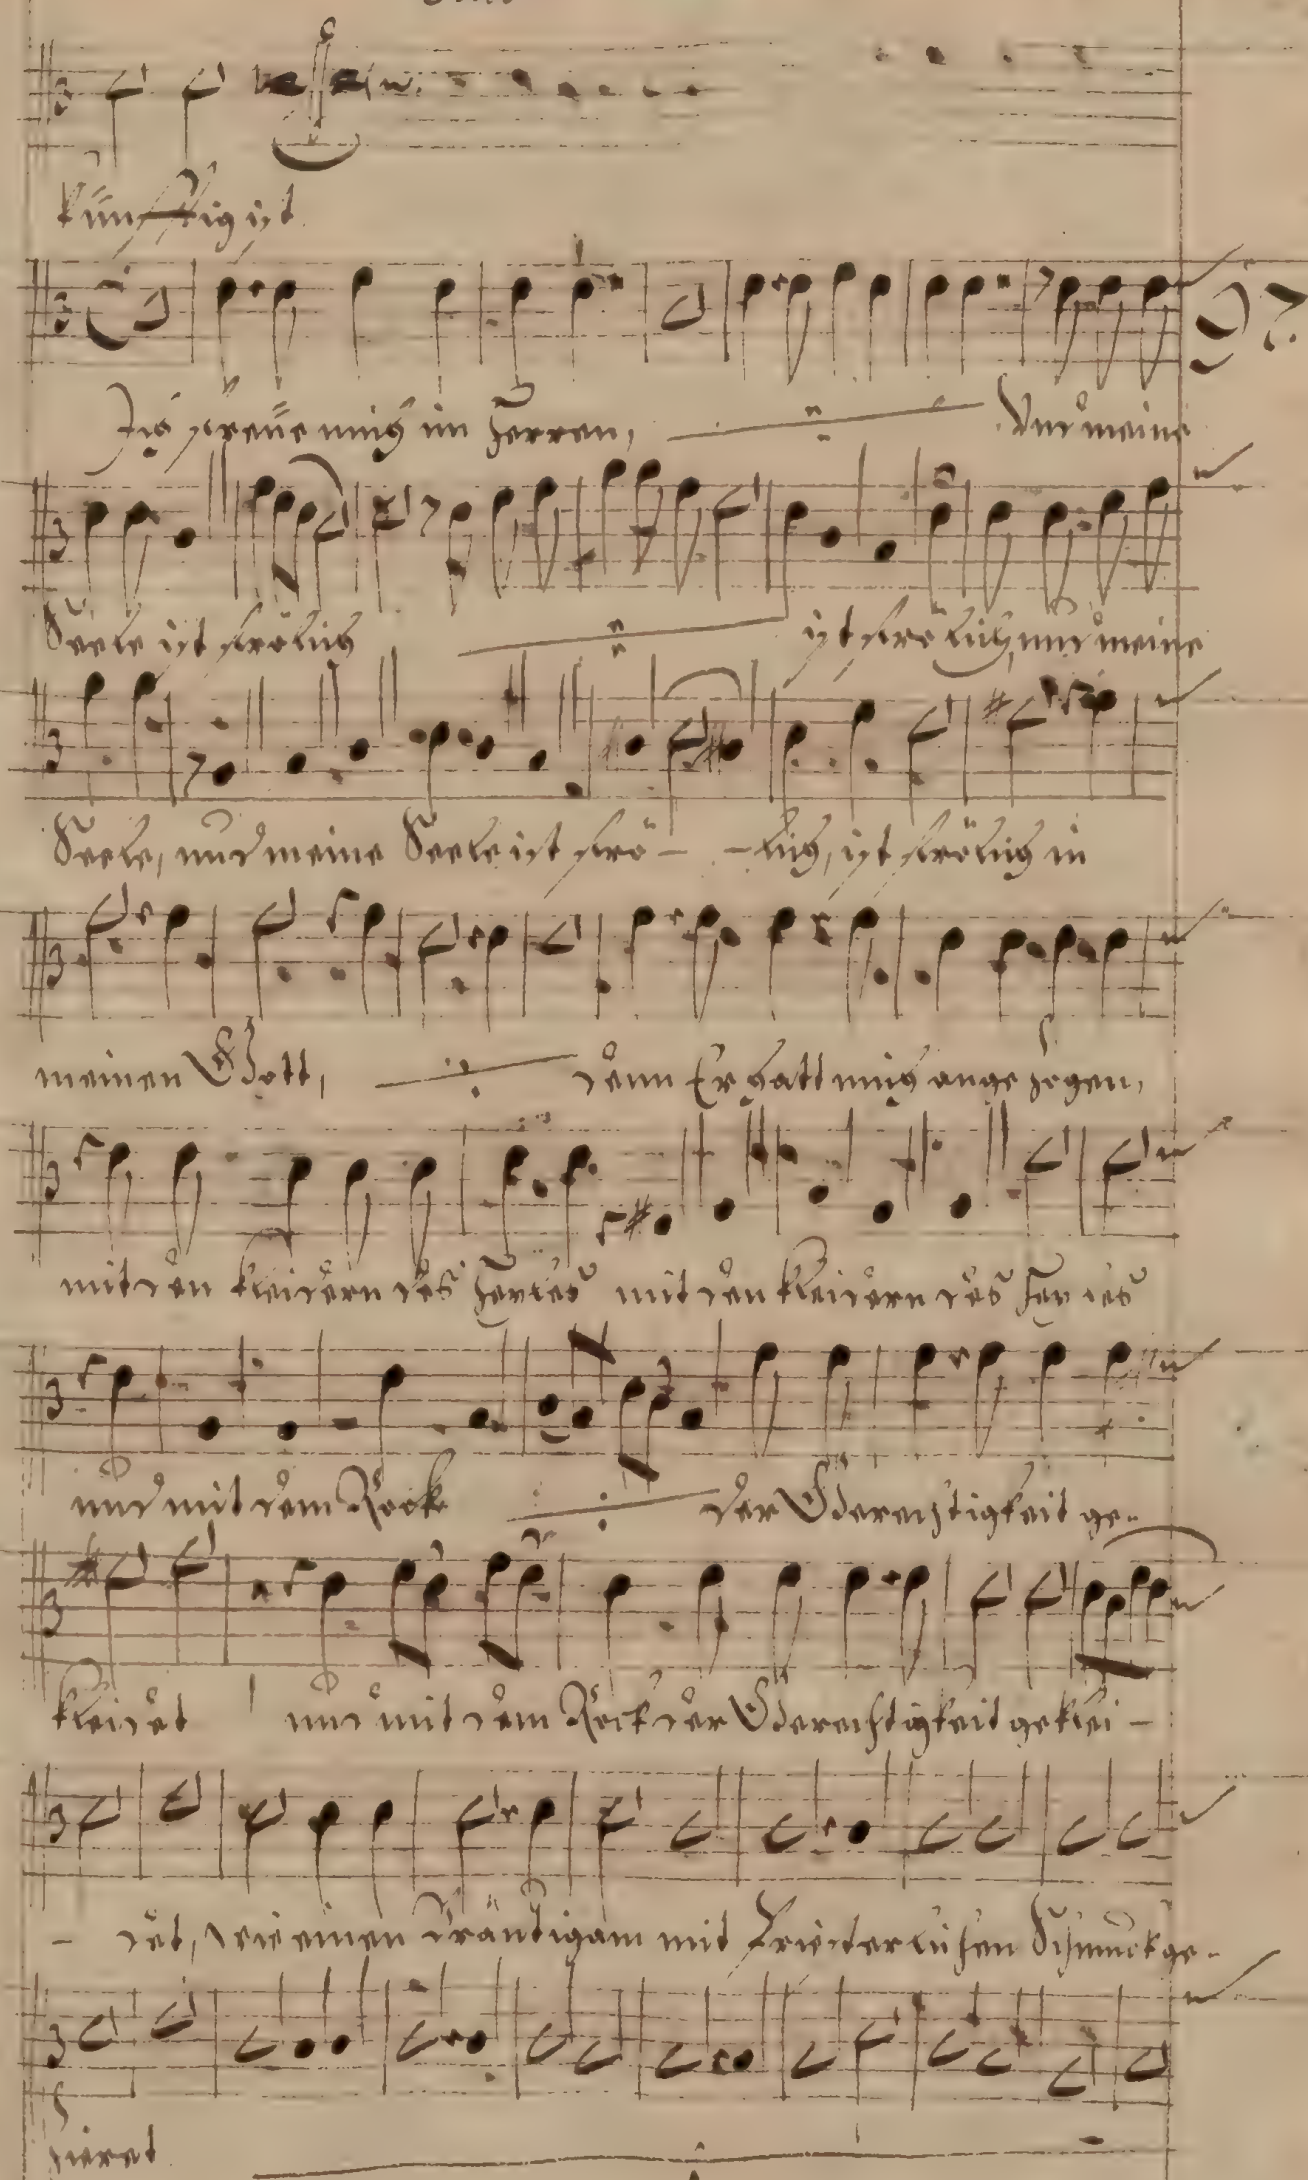 künfftig ist
Ich freüe mich im Herren, Und meine
Seele ist frölich ist frölich, und meine
Seele, und meine Seele ist frö - - lich, ist frölich in
meinen Gott, denn Er hatt mich angezogen,
mit den kleidern des Heyles mit den kleidern des Heyles
und mit dem Rock der Gerechtigkeit ge-
kleidet und mit dem Rock der Gerechtigkeit geklei -
- det, wie einen Bräutigam mit Priesterlichen Schmuck ge-
zieret